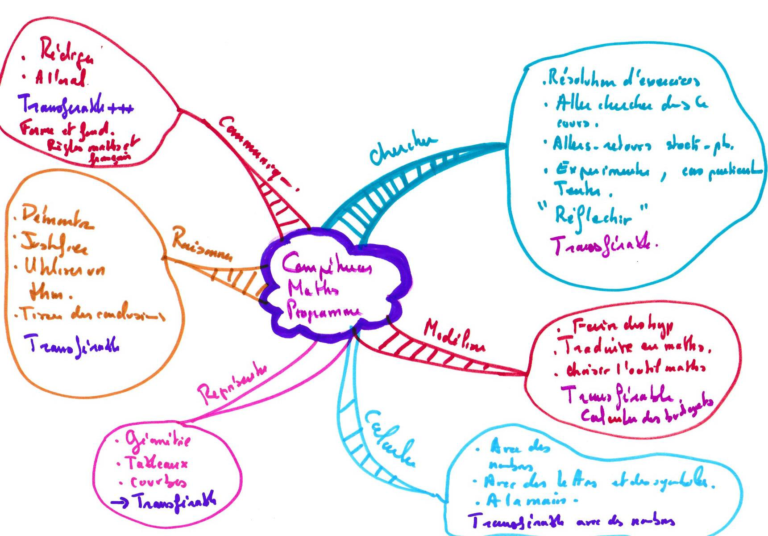 Compétences
Maths
Programme
Communiquer
Rédiger
A l'oral
Transférable +++
Forme et fond.
Règles maths et
français
Chercher
Résolution d'exercices
Aller chercher dans le
cours.
Allers-retours
Experimenter, cas particuliers
Tester.
"Réflechir"
Transférable.
Raisonner
Démontrer
Justifier
Utiliser un
thm.
Tirer des conclusions
Transférable
Modéliser
Faire des hyp
Traduire en maths.
choisir l'outil maths
Transférable.
Calculer des budgets
Représenter
Géométrie
Tableaux
courbes
→ Transférable
Calculer
Avec des
nombres
Avec des lettres et des symboles.
A la main.
Transférable avec des nombres